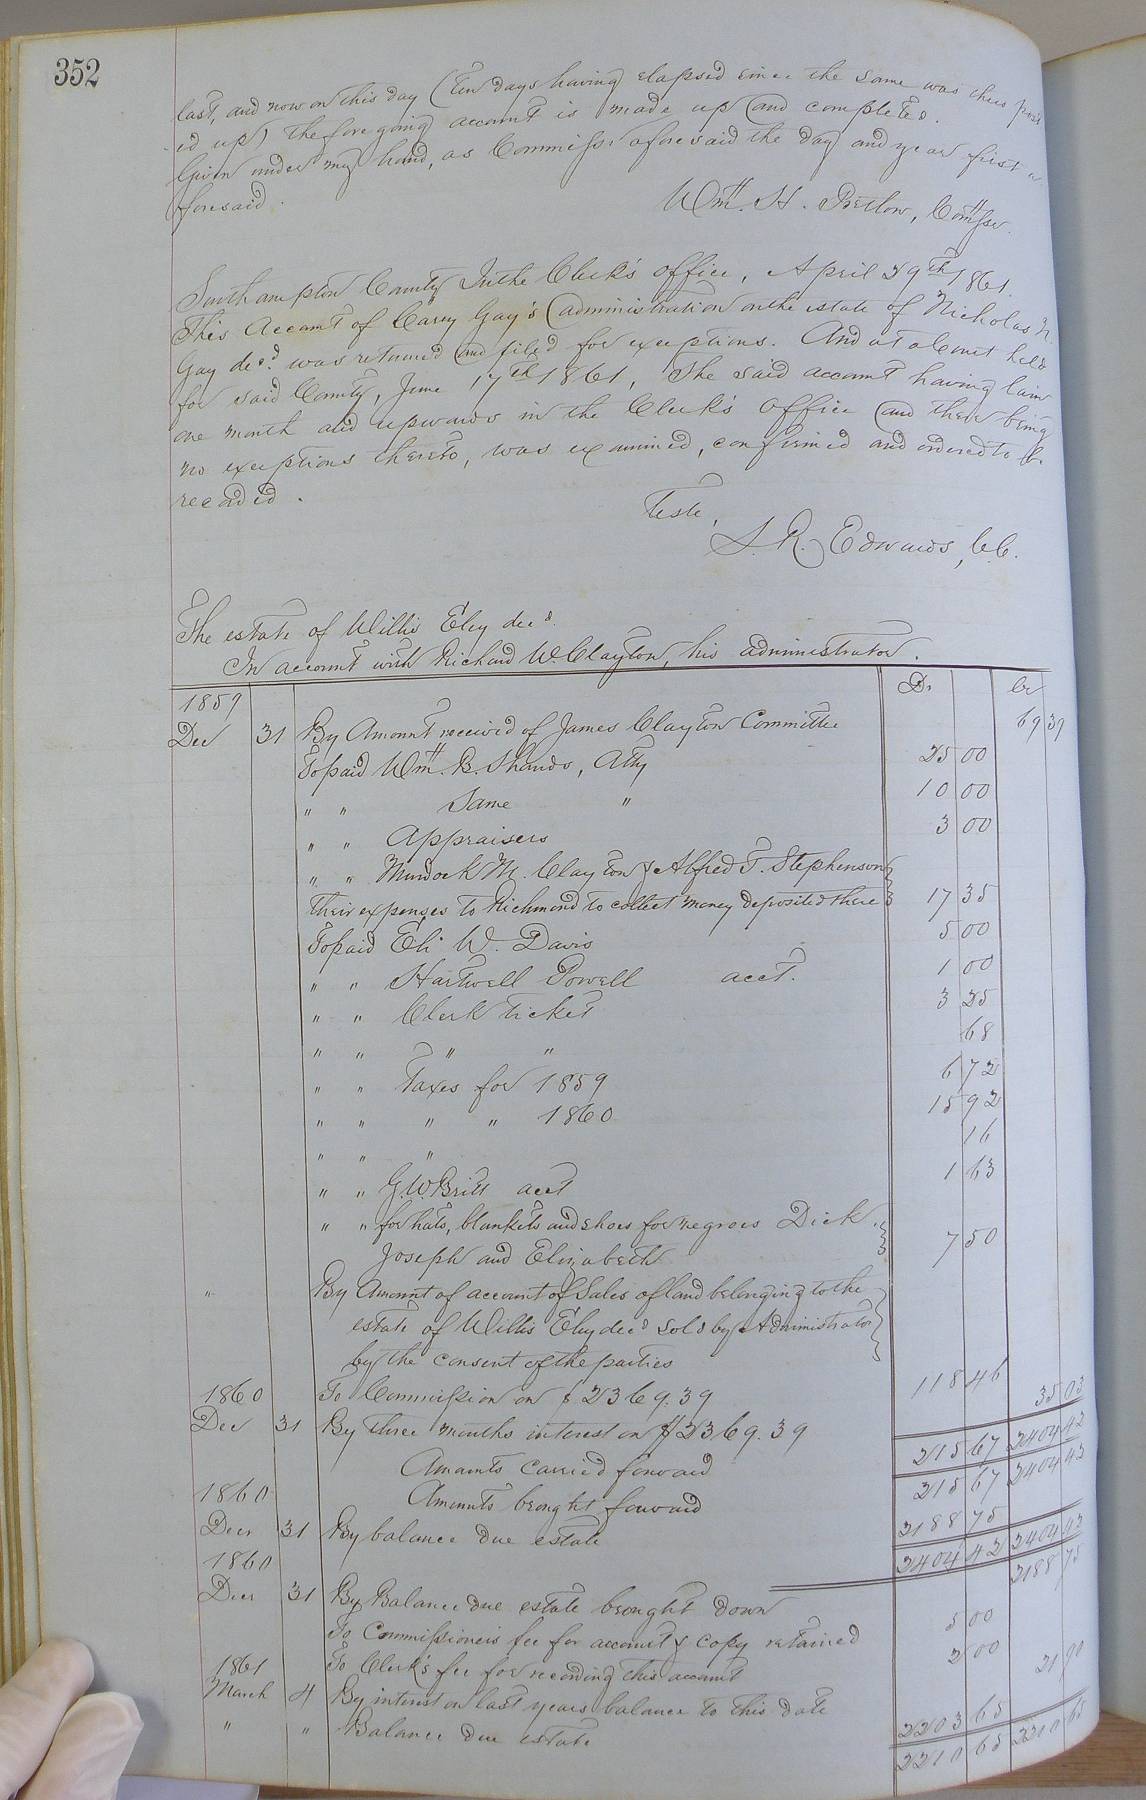 352
last, and now on this day (Ten days having elapsed since the same was thus post
ed up) the foregoing account is made up and completed.
Given under my hand, as Commissr. aforesaid the day and year first a
foresaid.
Wm. H. Pretlow, Commssr.
Southampton County In the Clerk's office, April 29th 1861.
This Account of Carey Gay's administration on the estate of Nicholas N.
Gay decd. was returned and filed for exceptions. And at a Court held
for said County, June 17th 1861, The said account having lain
one month and upwards in the Clerk's office and there being
no exceptions thereto, was examined, confirmed and ordered to be
recorded.
Teste,
L. R. Edwards, C.C.
The estate of Willis Eley decd.
In account with Richard W. Clayton, his administrator.
1859 Dr Cr
Dec 31 By Amount received of James Clayton Committee 69 39
To paid Wm. B. Shands, Atty 25 00
" " Same " 10 00
" " Appraisers 3 00
" " Murdock M. Clayton & Alfred T. Stephenson
their expenses to Richmond to collect money deposited there 17 35
To paid Eli W. Davis 5 00
" " Hartwell Powell acct. 1 00
" " Clerk Ticket 3 25
" " " " 68
" " Taxes for 1859 6 72
" " " " 1860 15 92
" " " 16
" " G.W. Britt acct 1 63
" " for hats, blankets and shoes for negroes Dick.
Joseph and Elizabeth 7 50
" By Amount of account of Sales of land belonging to the
estate of Willis Eley decd sold by Administrator
by the consent of the parties
1860 To Commission on $2369.39 118 46
Dec 31 By three months interest on $2369.39 35 03
Amounts carried forward 215 67 2404 42
1860 Amounts brought forward 215 67 2404 42
Decr 31 By balance due estate 2188 75
1860 2404 42 2404 42
Decr 31 By Balance due estate brought down 2188 75
To Commissioners fee for account & copy returned 5 00
1861 To Clerk's fee for recording this account 2 00
March 4 By interest on last years balance to this date 21 90
" " Balance due estate 2203 65
2210 65 2210 65